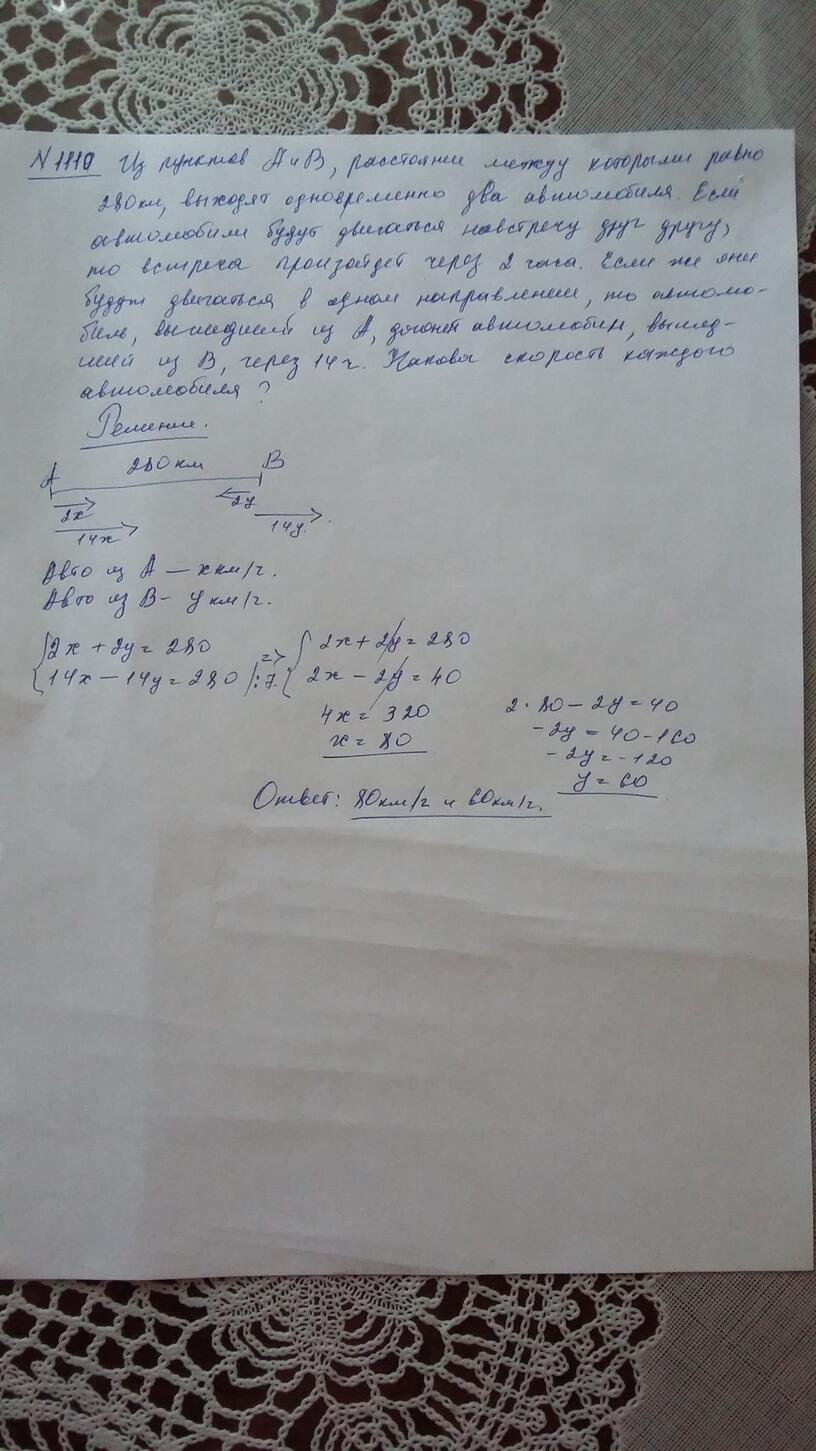 N 1110 Из пунктов А и В, расстояние между которыми равно
280 км, выходят одновременно два автомобиля. Если
автомобили будут двигаться навстречу друг другу,
то встреча произойдет через 2 часа. Если же они
будут двигаться в одном направлении, то автомо-
биль, вышедший из А, догонет автомобиль, вышед-
ший из В, через 14 ч. Какова скорость каждого
автомобиля ?
Решение.
А 280 км В
2х 2у
14х 14у.
Авто из А — х км/ч.
Авто из В - у км/ч.
{2х + 2у = 280
{14х - 14у = 280 |:7
=> {2х + 2у = 280
{2х - 2у = 40
4х = 320
х = 80
2 · 80 - 2у = 40
-2у = 40 - 160
-2у = -120
у = 60
Ответ: 80 км/ч и 60 км/ч.